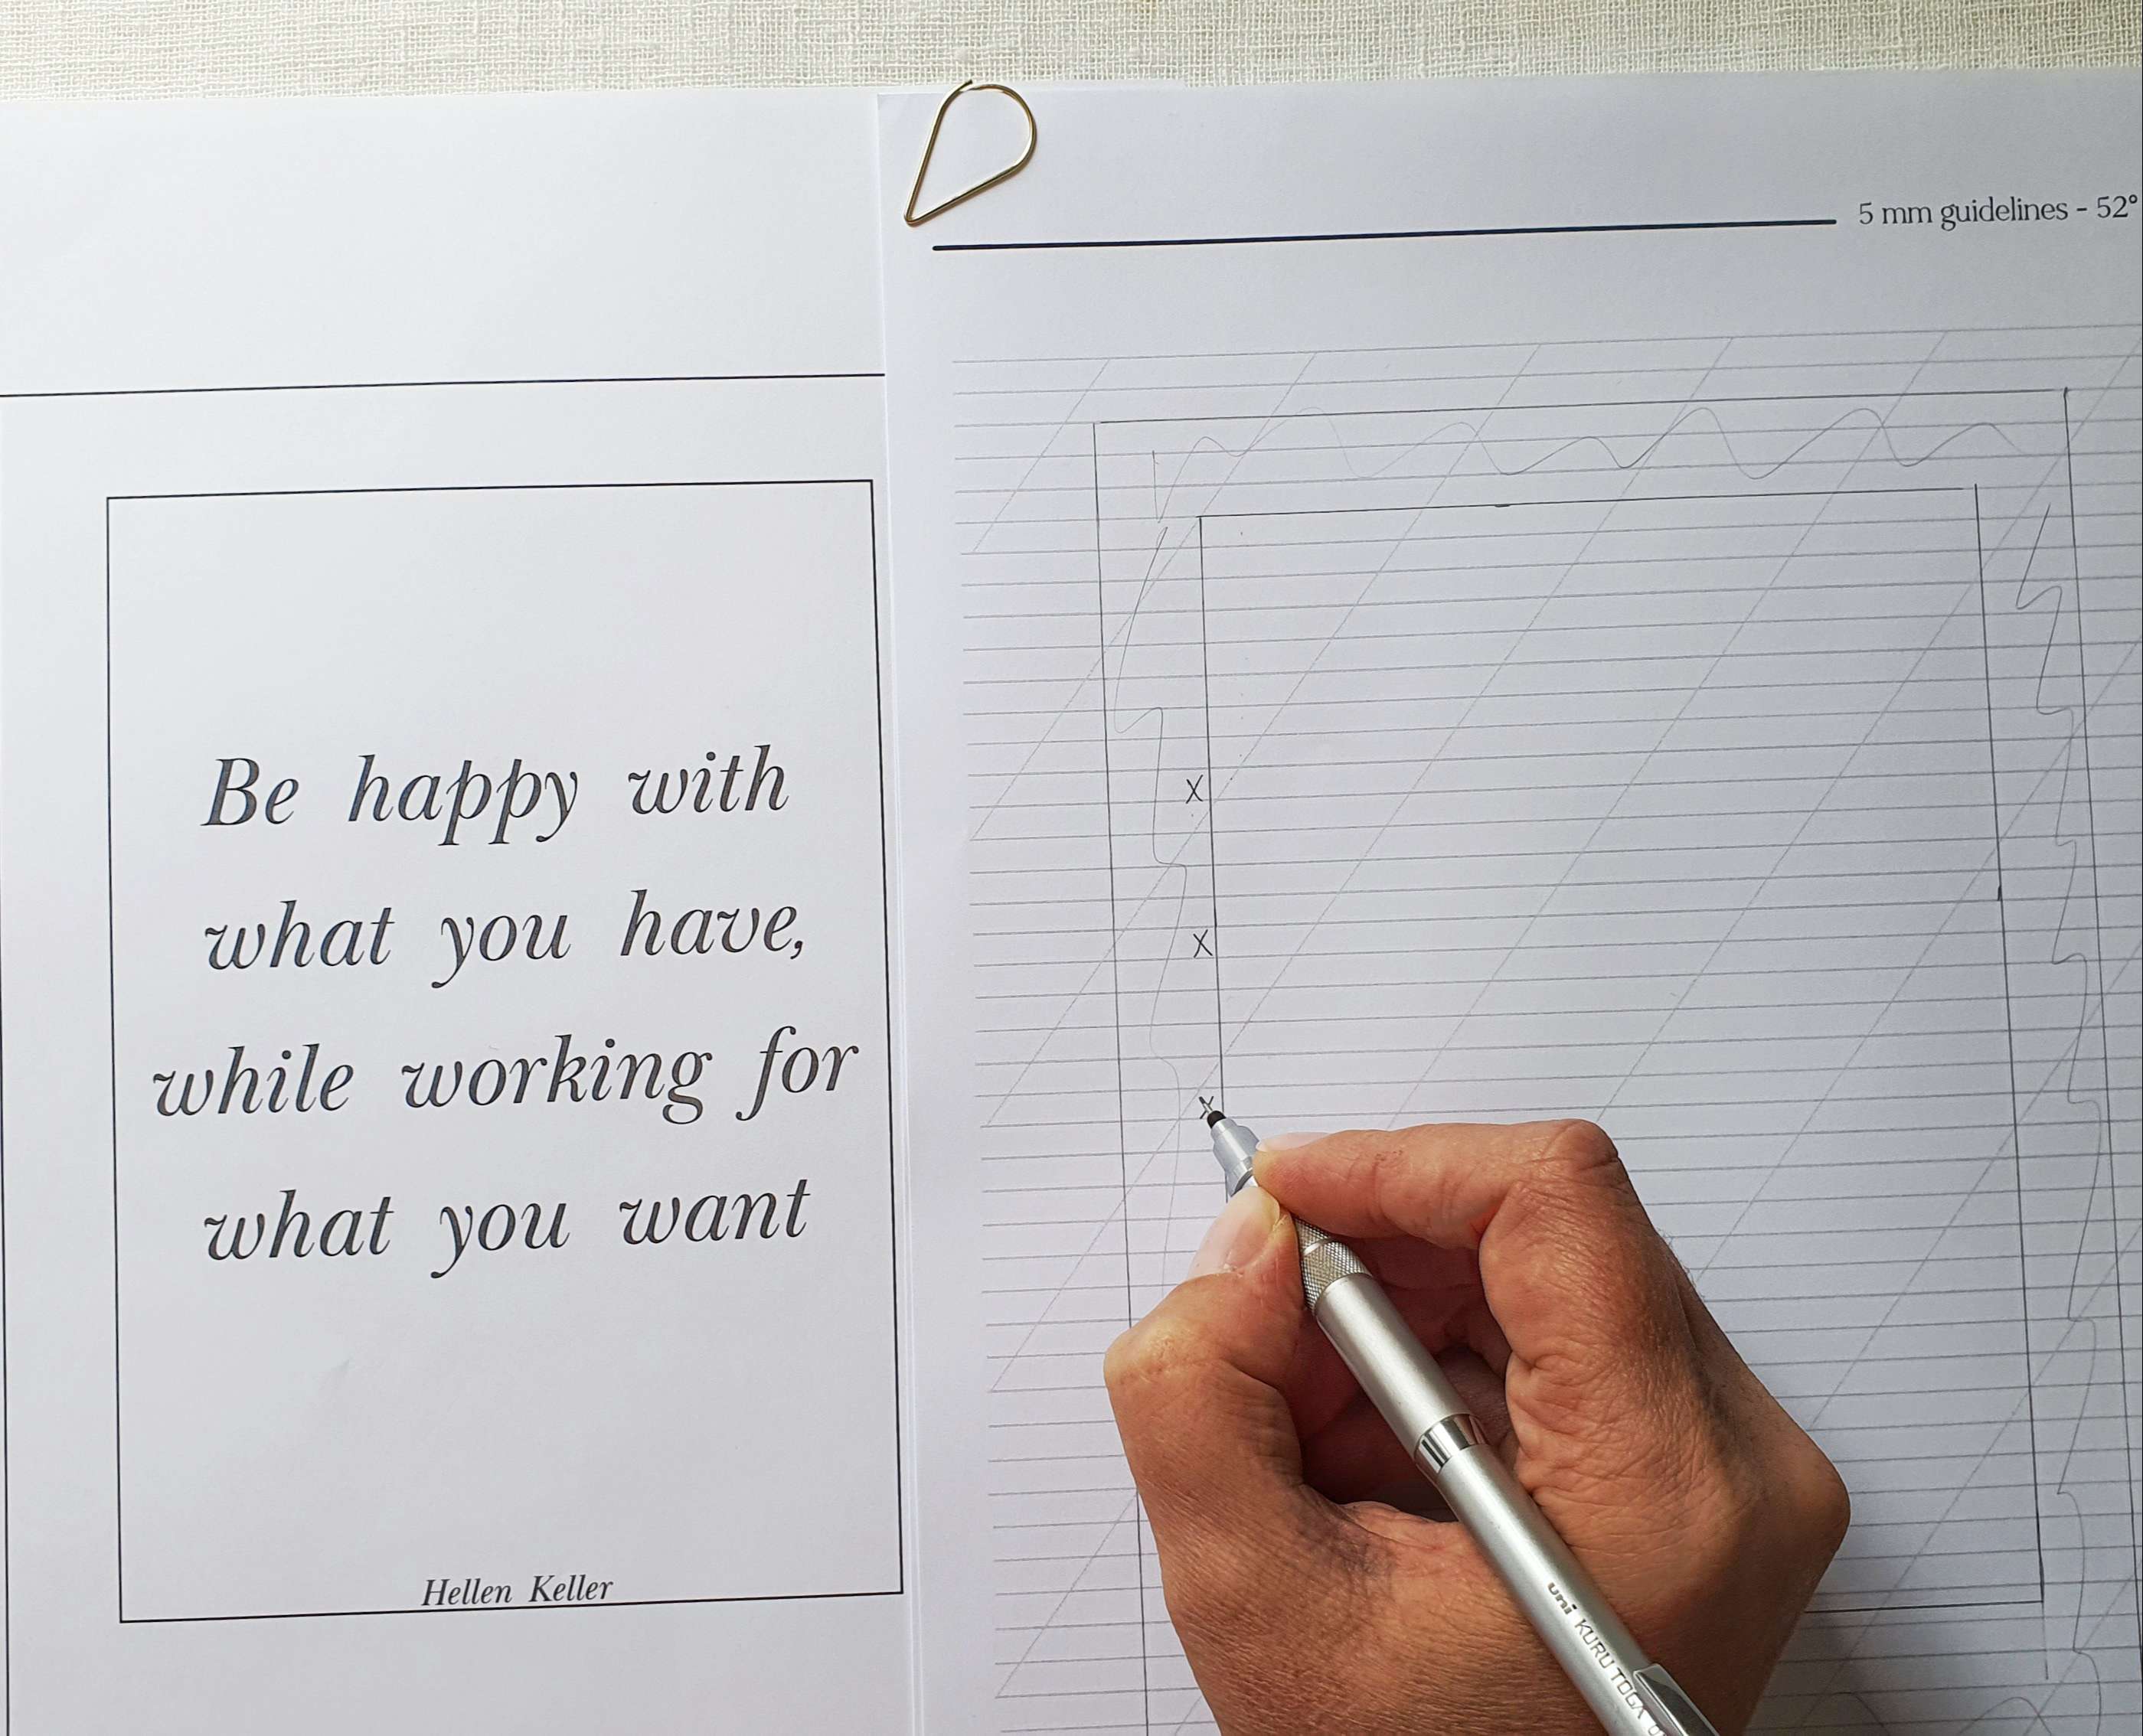 Be happy with
what you have,
while working for
what you want
Hellen Keller
5 mm guidelines - 52°
X
X
X
uni KURU TOGA